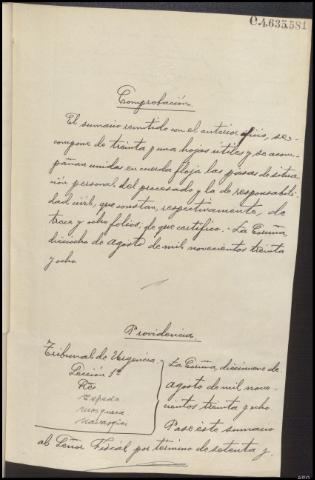 C.4.635.581
Comprobación
El sumario remitido con el anterior oficio, se
compone de treinta y una hojas útiles y se acom-
pañan unidas en cuerda floja las piezas de situa-
ción personal del procesado y la de responsabili-
dad civil, que constan, respectivamente, de
trece y ocho folios, de que certifico.- La Coruña,
dieciocho de agosto de mil novecientos treinta
y ocho
Providencia
Tribunal de Urgencia
Sección 1ª
Pte
Tejeda
Mosquera
La Coruña, diecinueve de
agosto de mil nove-
cientos treinta y ocho
Pase este sumario
al Señor Fiscal por término de setenta y